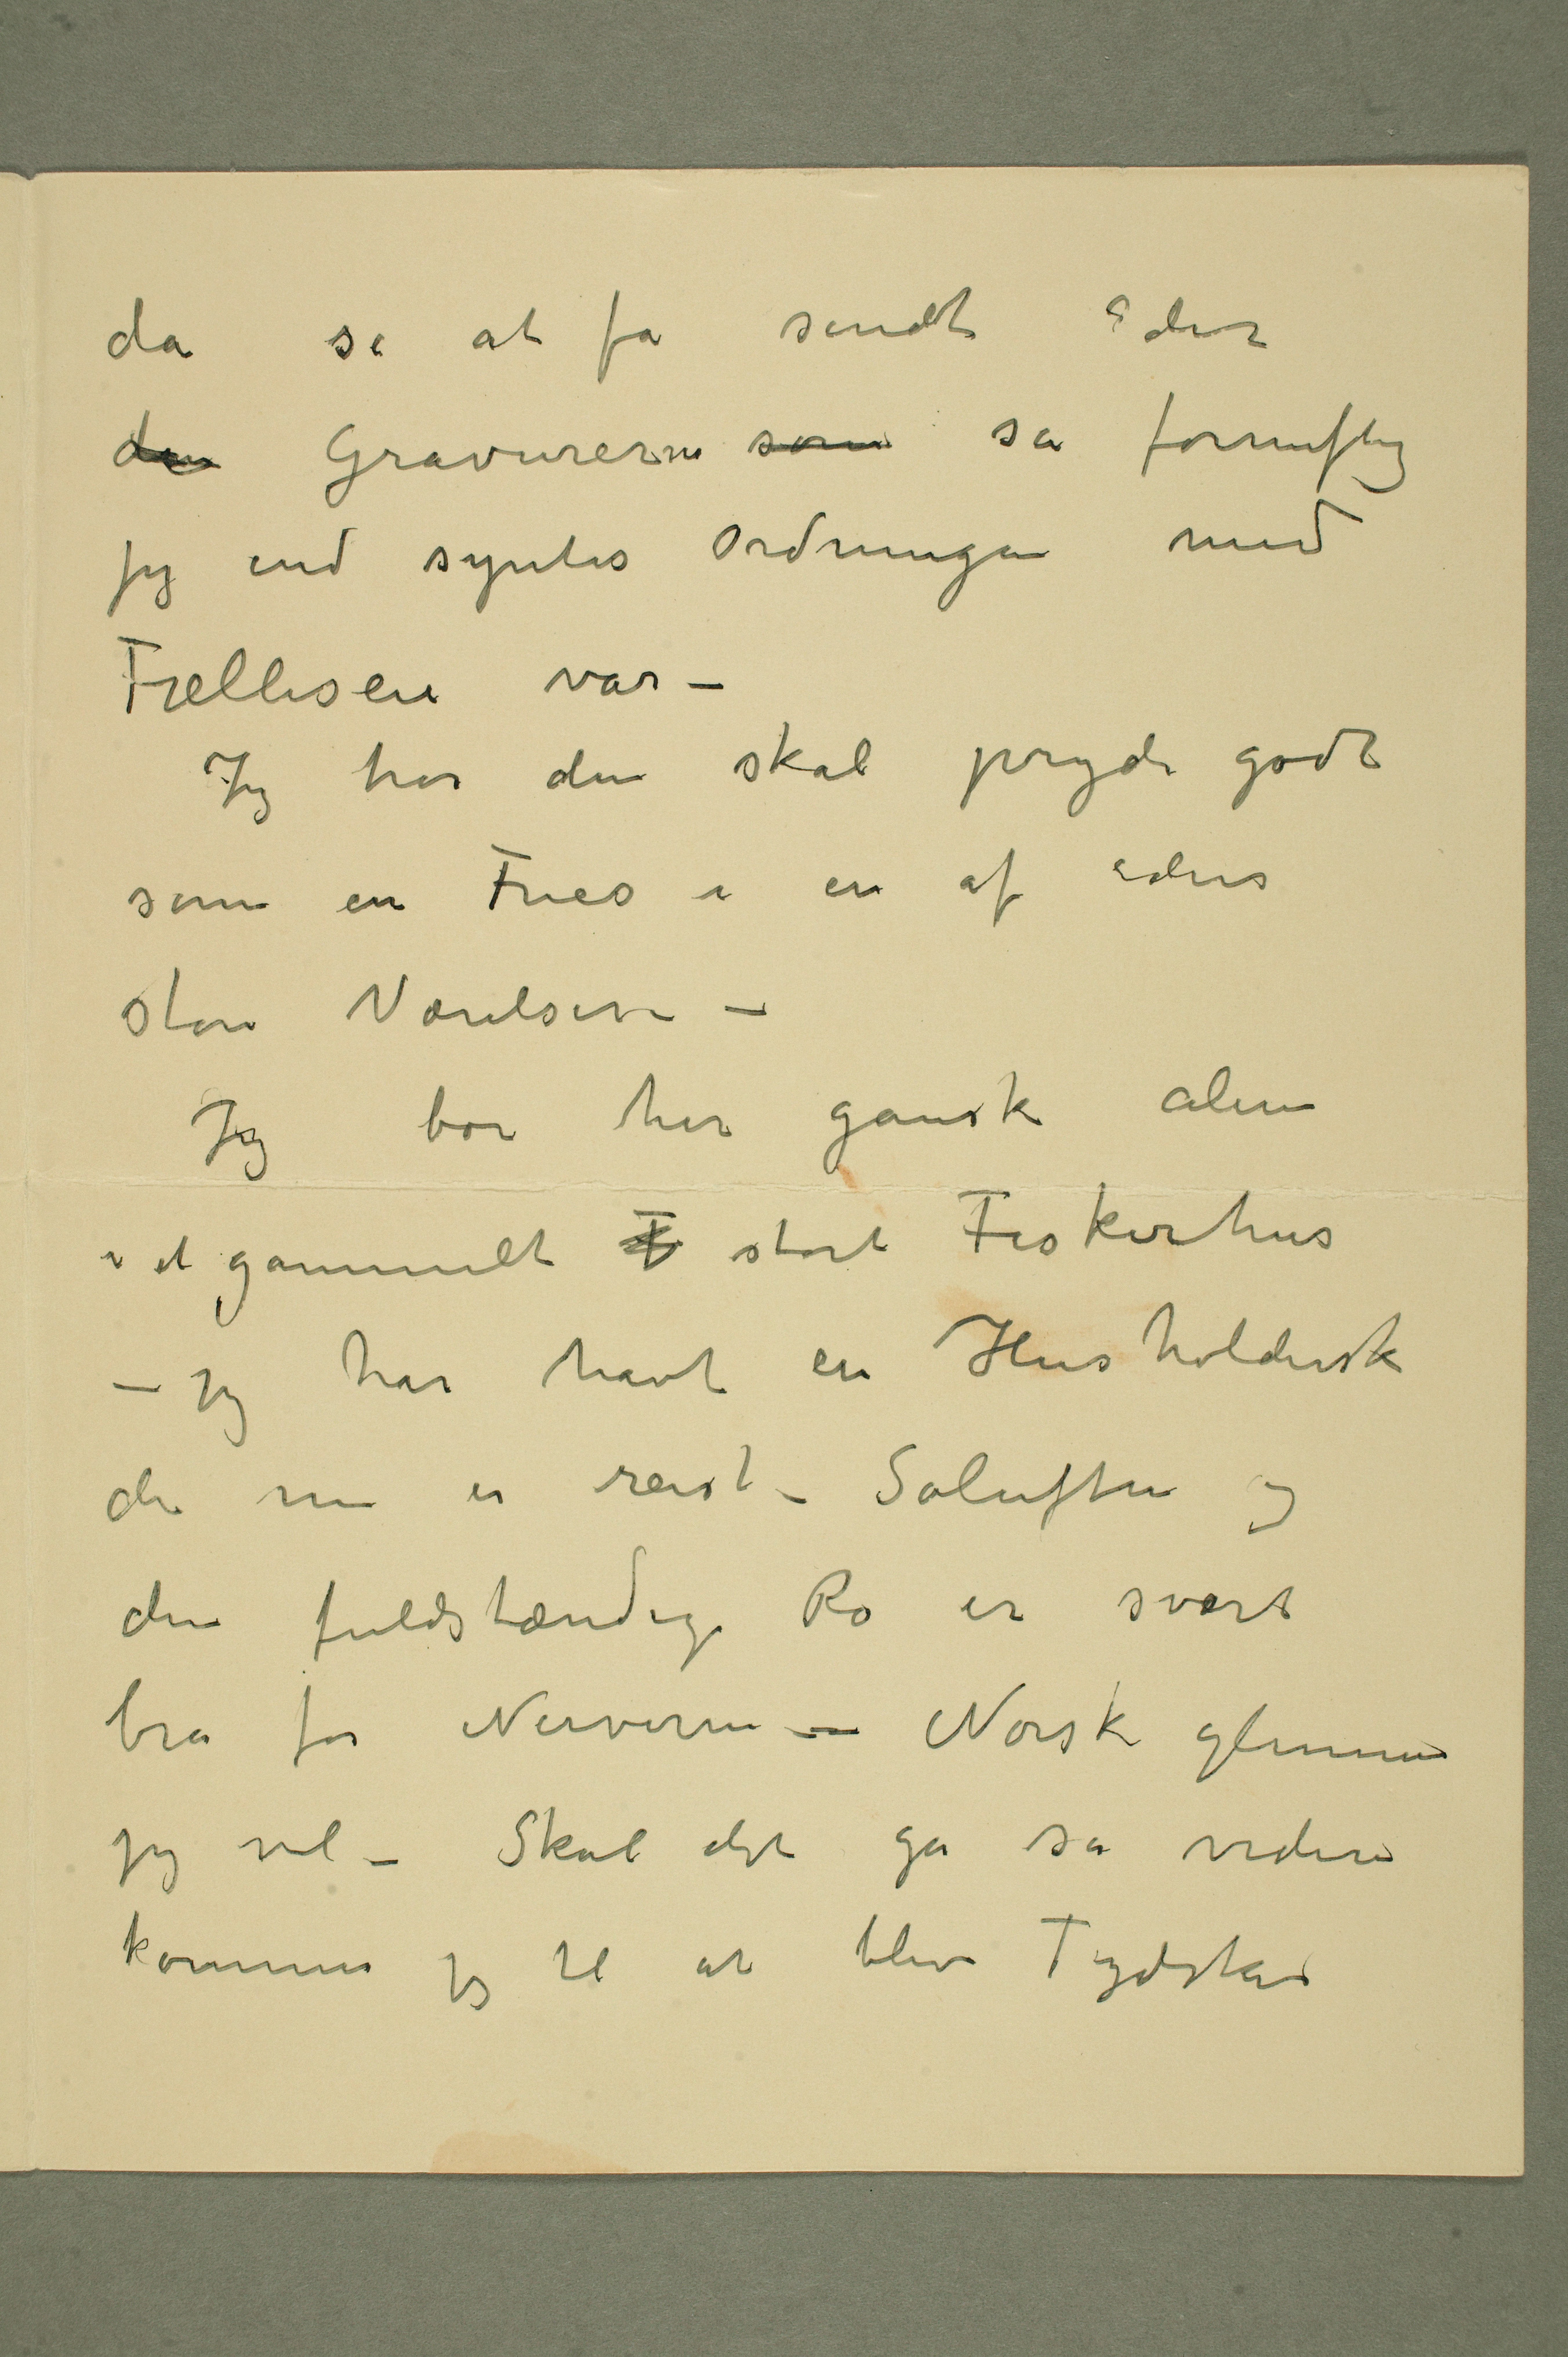 da se at få sendt eder
den Gravurerne som så fornuftig
jeg end syntes Ordningen med
Frellisen var –
Jeg tror den skal pryde godt
som en Fries i en af eders
store Værelser –
Jeg bor her ganske alene
i et gammelt F stort Fiskerhus
– jeg har havt en Husholderske
der nu er reist – Søluften og
den fuldstændige Ro er svært
bra for Nerverne – Norsk glemmer
jeg vel – Skal det gå så videre
kommer jeg til at blive Tydsker